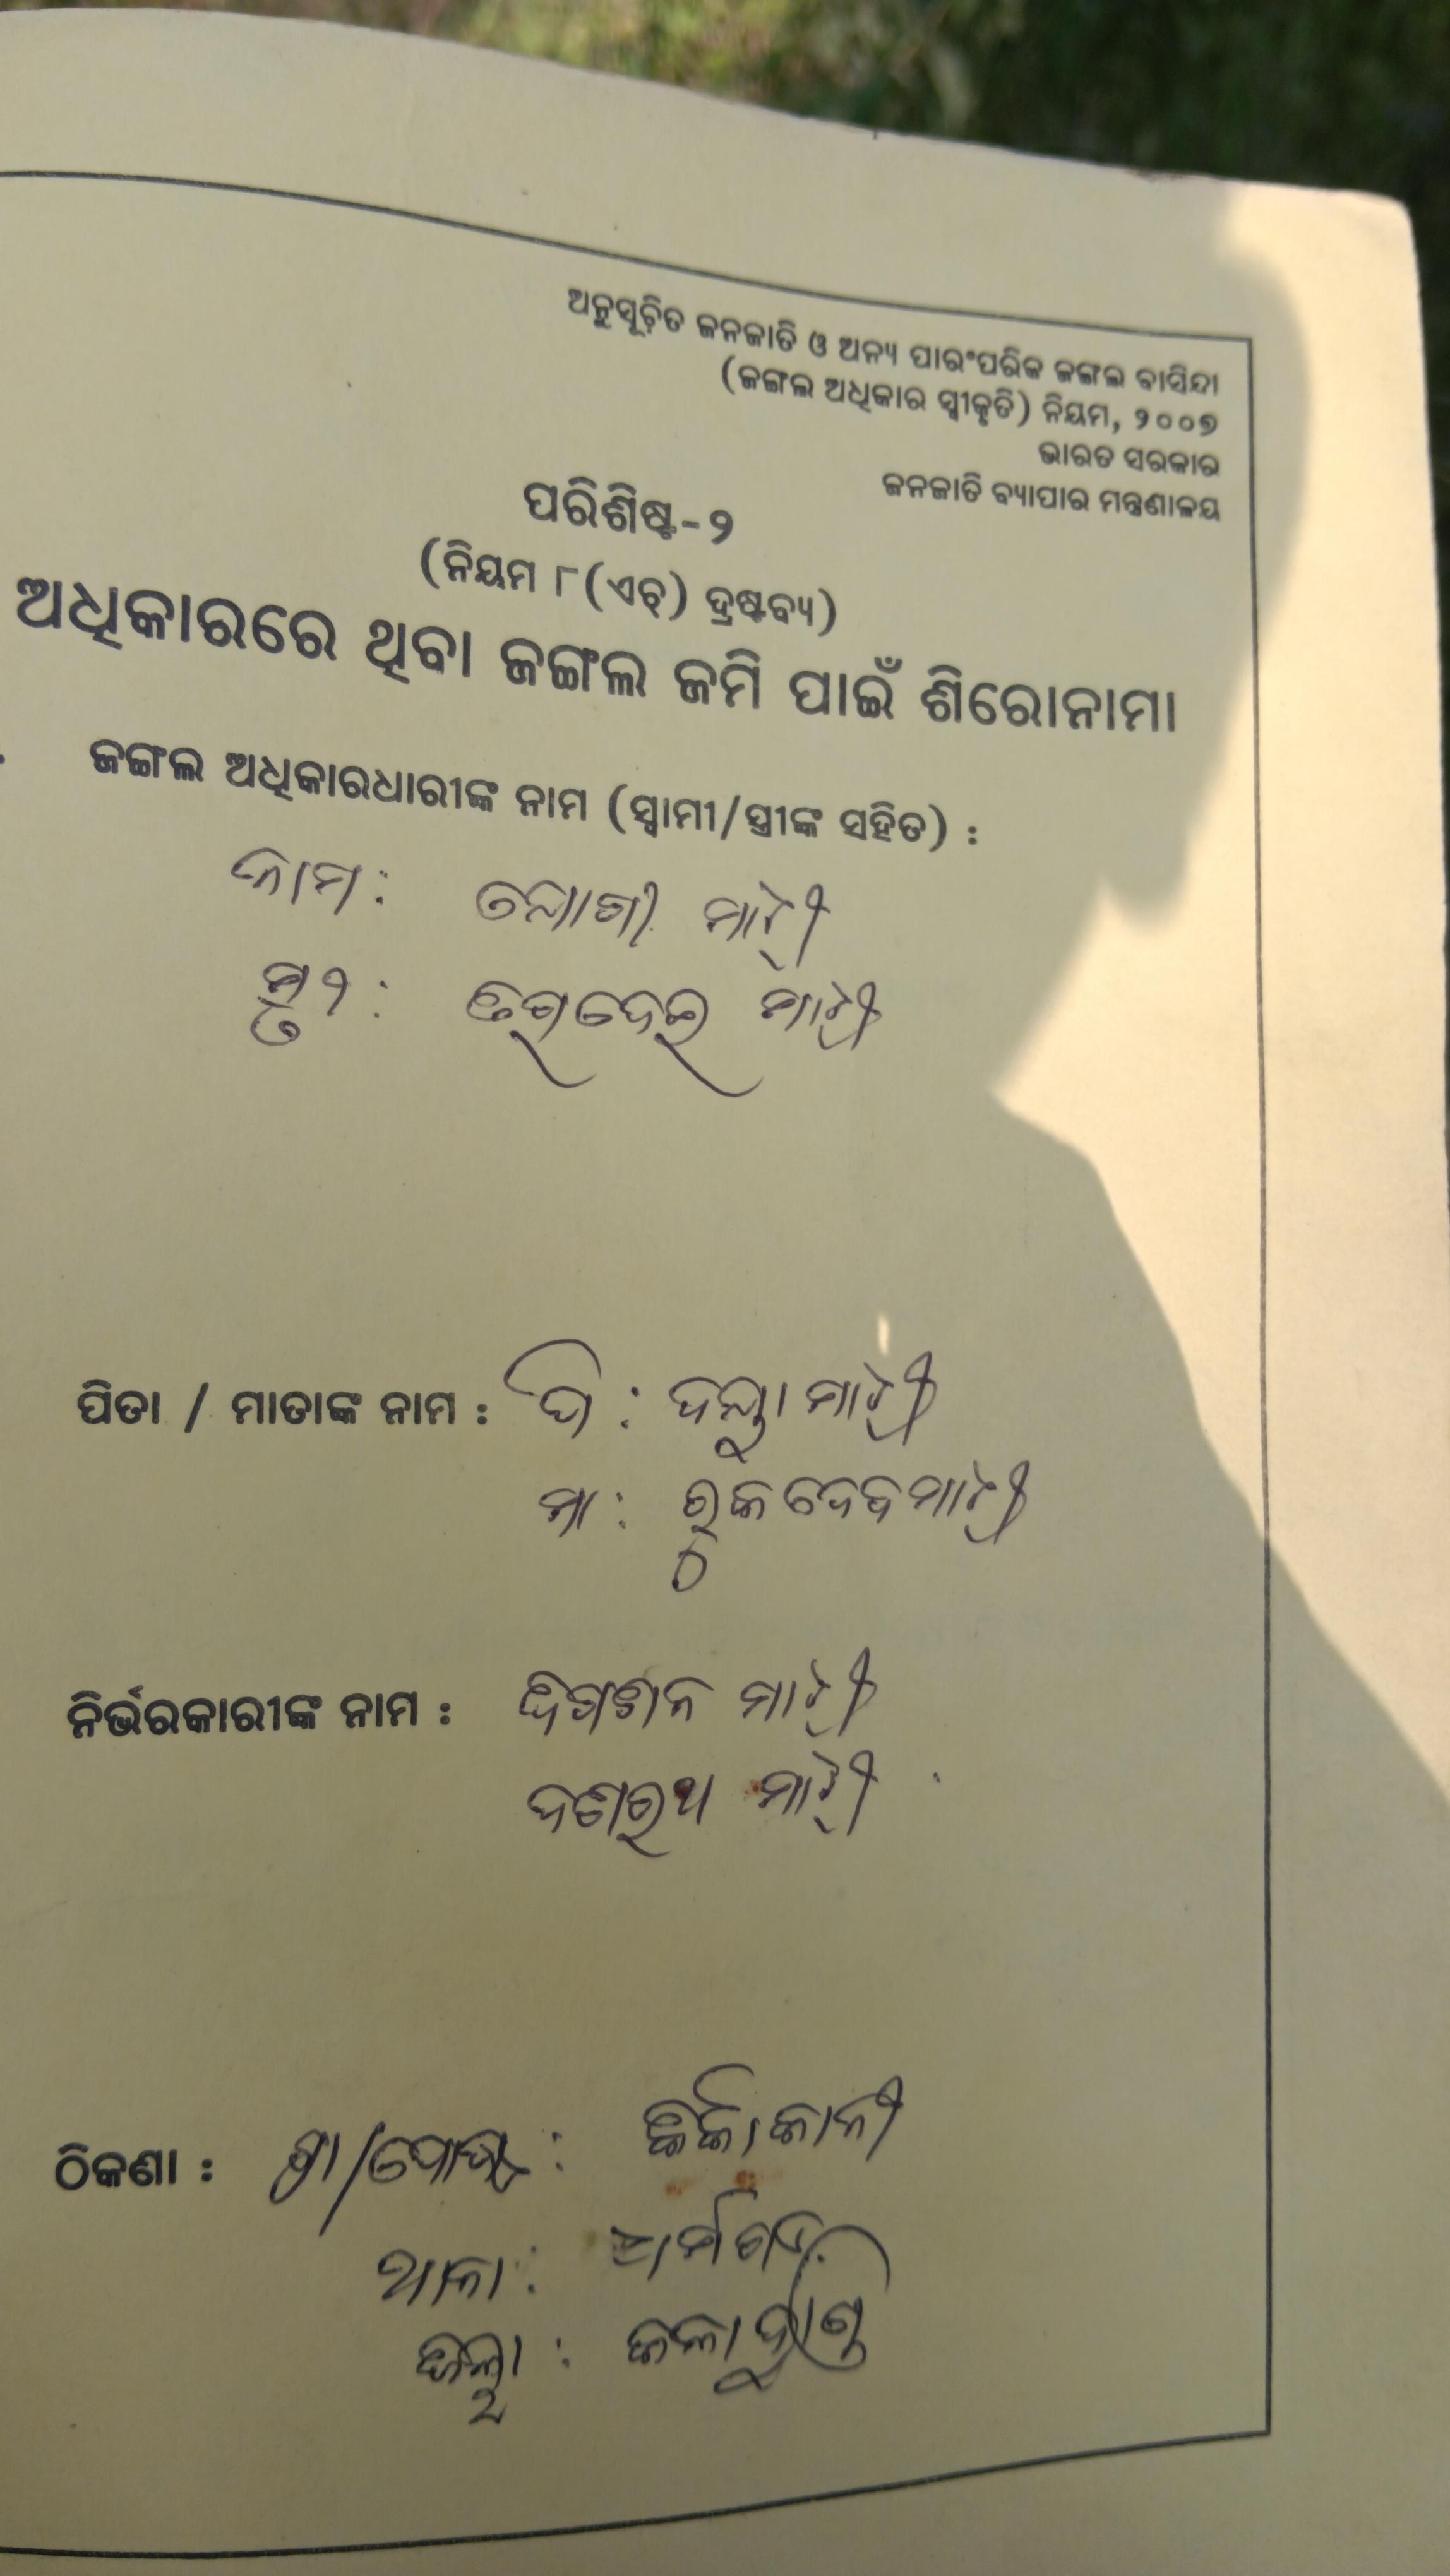 ଅନୁସୂଚିତ ଜନଜାତି ଓ ଅନ୍ୟ ପାରଂପରିକ ଜଙ୍ଗଲ ବାସିନ୍ଦା
(ଜଙ୍ଗଲ ଅଧିକାର ସ୍ୱୀକୃତି) ନିୟମ, ୨୦୦୭
ଭାରତ ସରକାର
ଜନଜାତି ବ୍ୟାପାର ମନ୍ତ୍ରଣାଳୟ
ପରିଶିଷ୍ଟ-୨
(ନିୟମ ୮(ଏଚ୍) ଦ୍ରଷ୍ଟବ୍ୟ)
ଅଧିକାରରେ ଥିବା ଜଙ୍ଗଲ ଜମି ପାଇଁ ଶିରୋନାମା
ଜଙ୍ଗଲ ଅଧିକାରଧାରୀଙ୍କ ନାମ (ସ୍ୱାମୀ/ସ୍ତ୍ରୀଙ୍କ ସହିତ) :
ନାମ: ମାଝୀ
ମାଝୀ
ପିତା / ମାତାଙ୍କ ନାମ : ପି : ମାଝୀ
ମା : ମାଝୀ
ନିର୍ଭରକାରୀଙ୍କ ନାମ : ମାଝୀ
ଦଶରଥ ମାଝୀ
ଠିକଣା : ଗ୍ରା/ପୋଷ୍ଟ :
ଥାନା : ଧର୍ମଗଡ଼
ଜିଲ୍ଲା : କଳାହାଣ୍ଡି